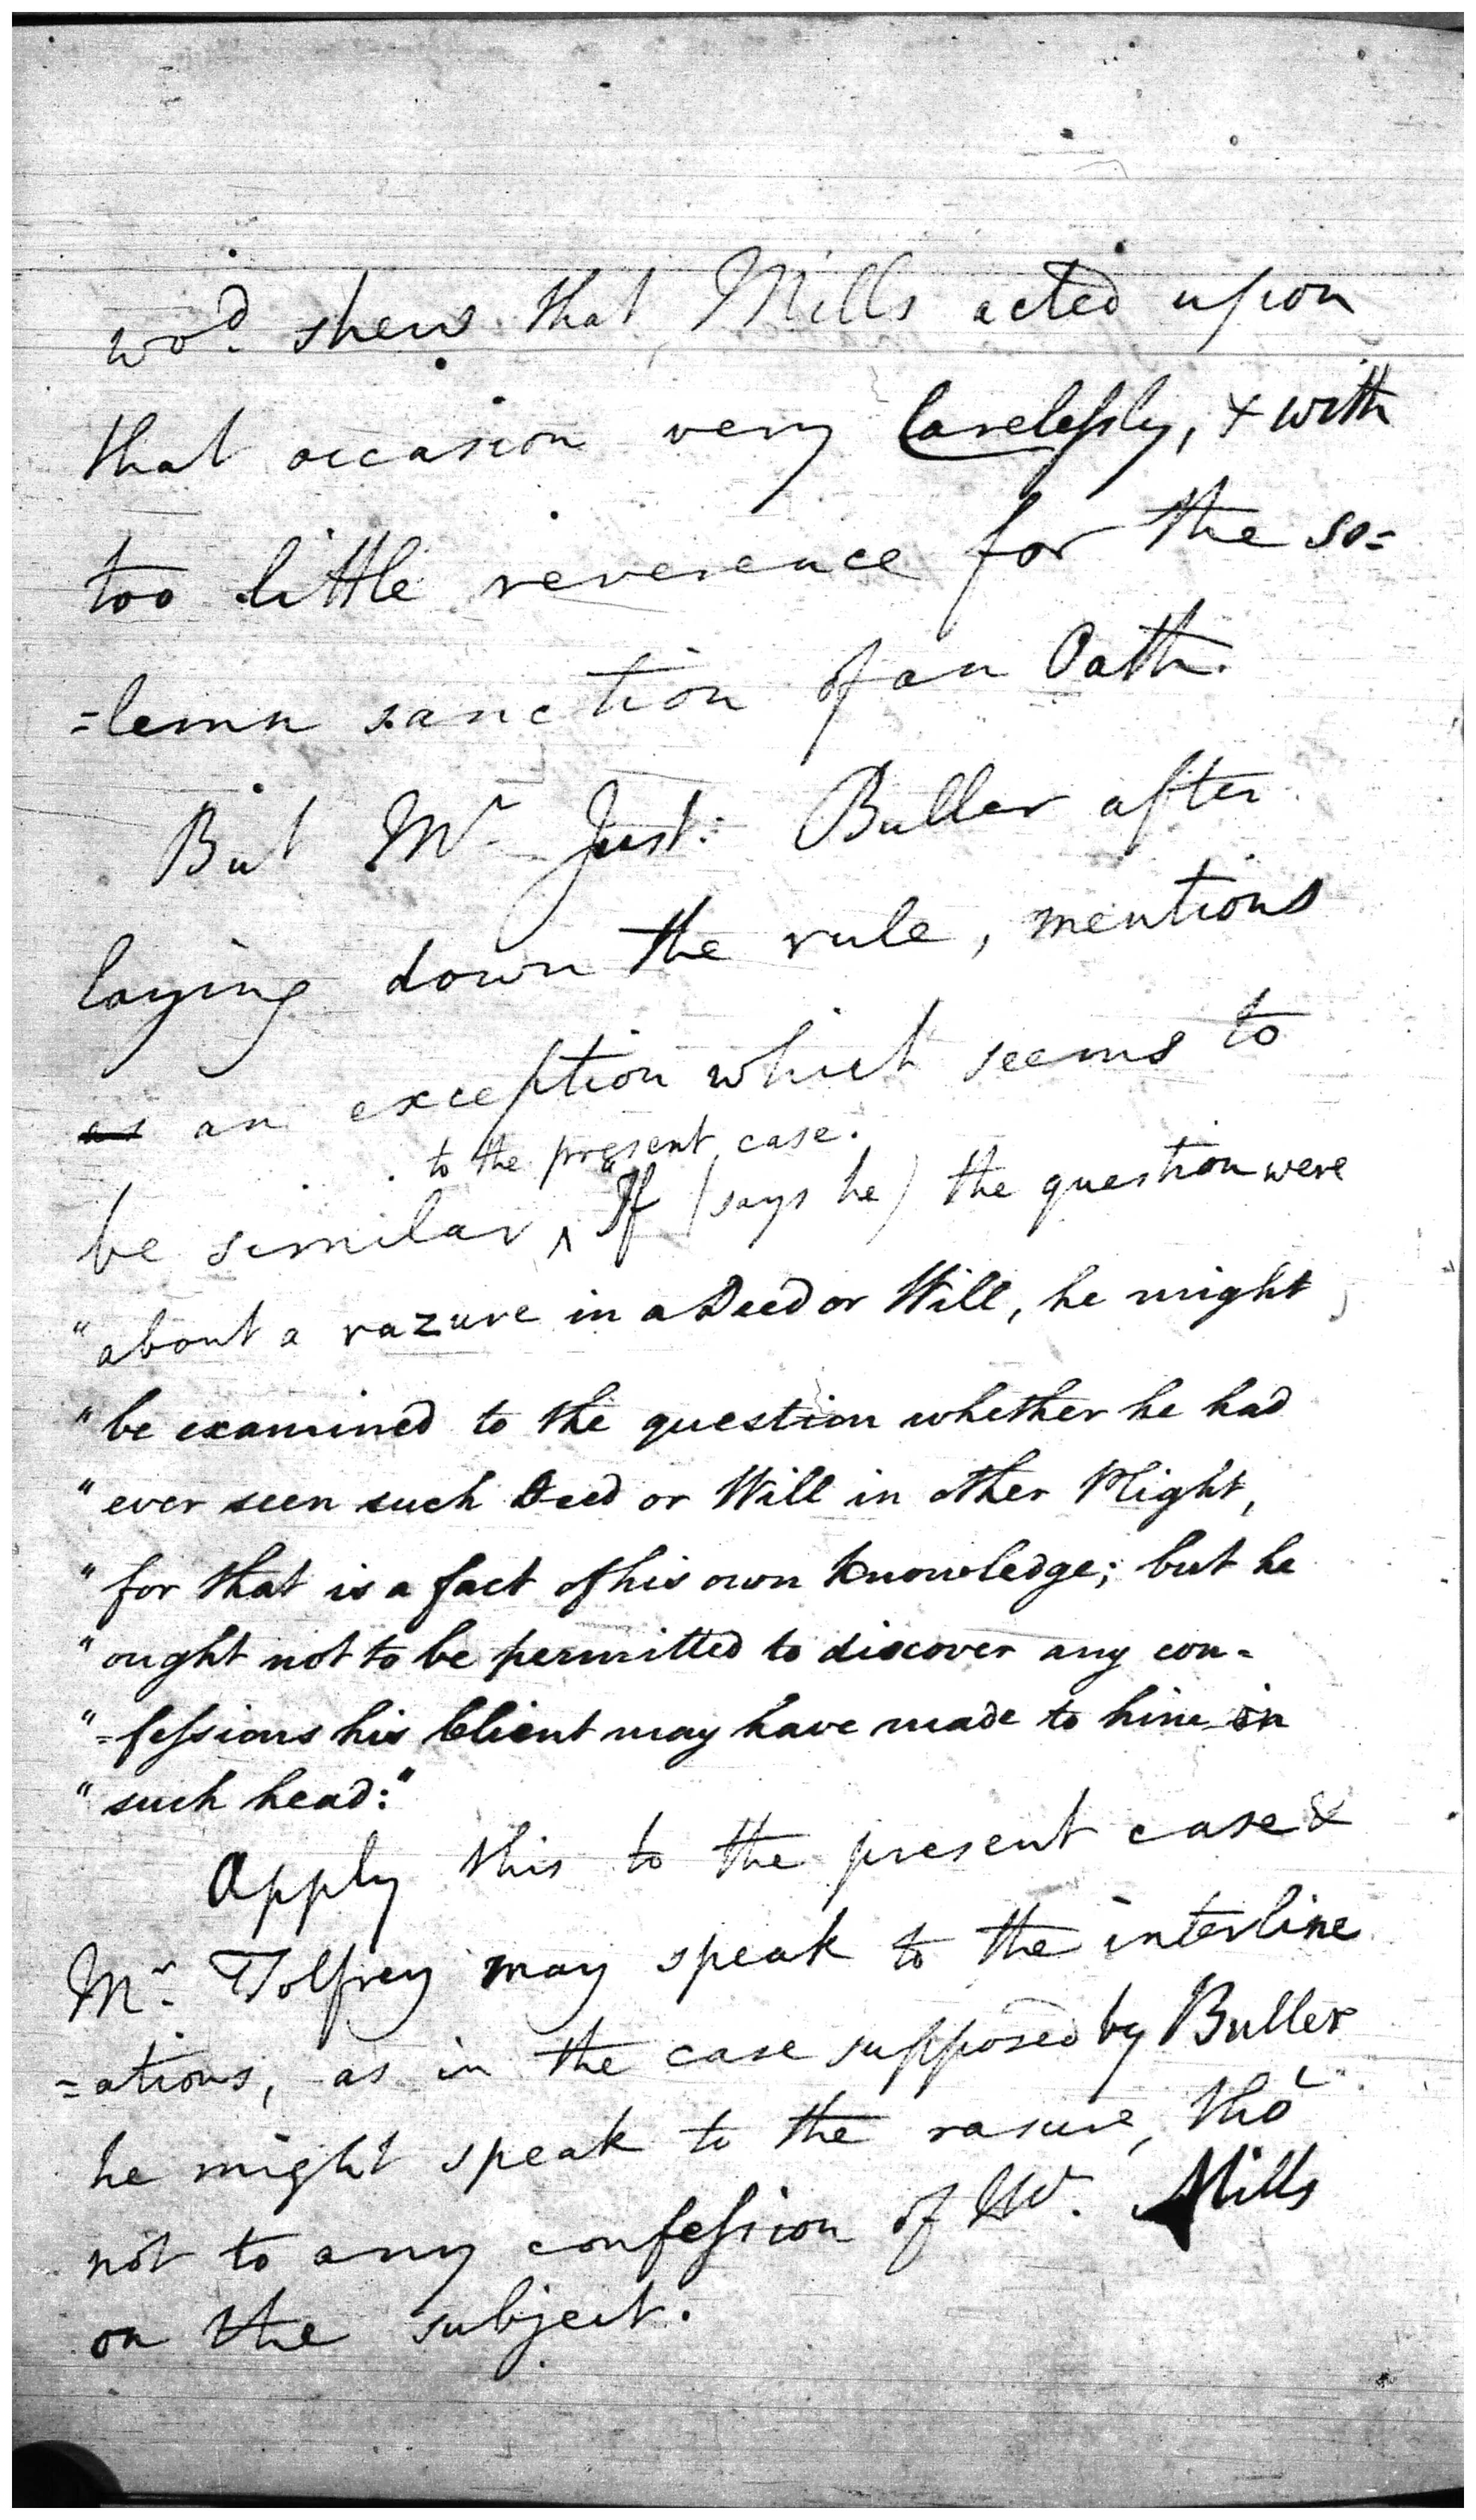 wo.d shew that Mills acted upon
that occasion very Carelessly, & with
too little reverence for the so=
=lemn sanction of an Oath.
But Mr. Just: Buller after
laying down the rule, mentions
as an exception which seems to
to the present case.
be similar ^ "If (says he) the question were
"about a razure in a Deed or Will, he might
"be examined to the question whether he had
"ever seen such Deed or Will in other Plight,
"for that is a fact of his own Knowledge; but he
"ought not to be permitted to discover any con=
"=fessions his Client may have made to him on
"such head:"
Apply this to the present case &
Mr. Tolfrey may speak to the interline
=ations, as in the case supposed by Buller
he might speak to the rasure, tho'
not to any confession of W. Mills
on the subject.